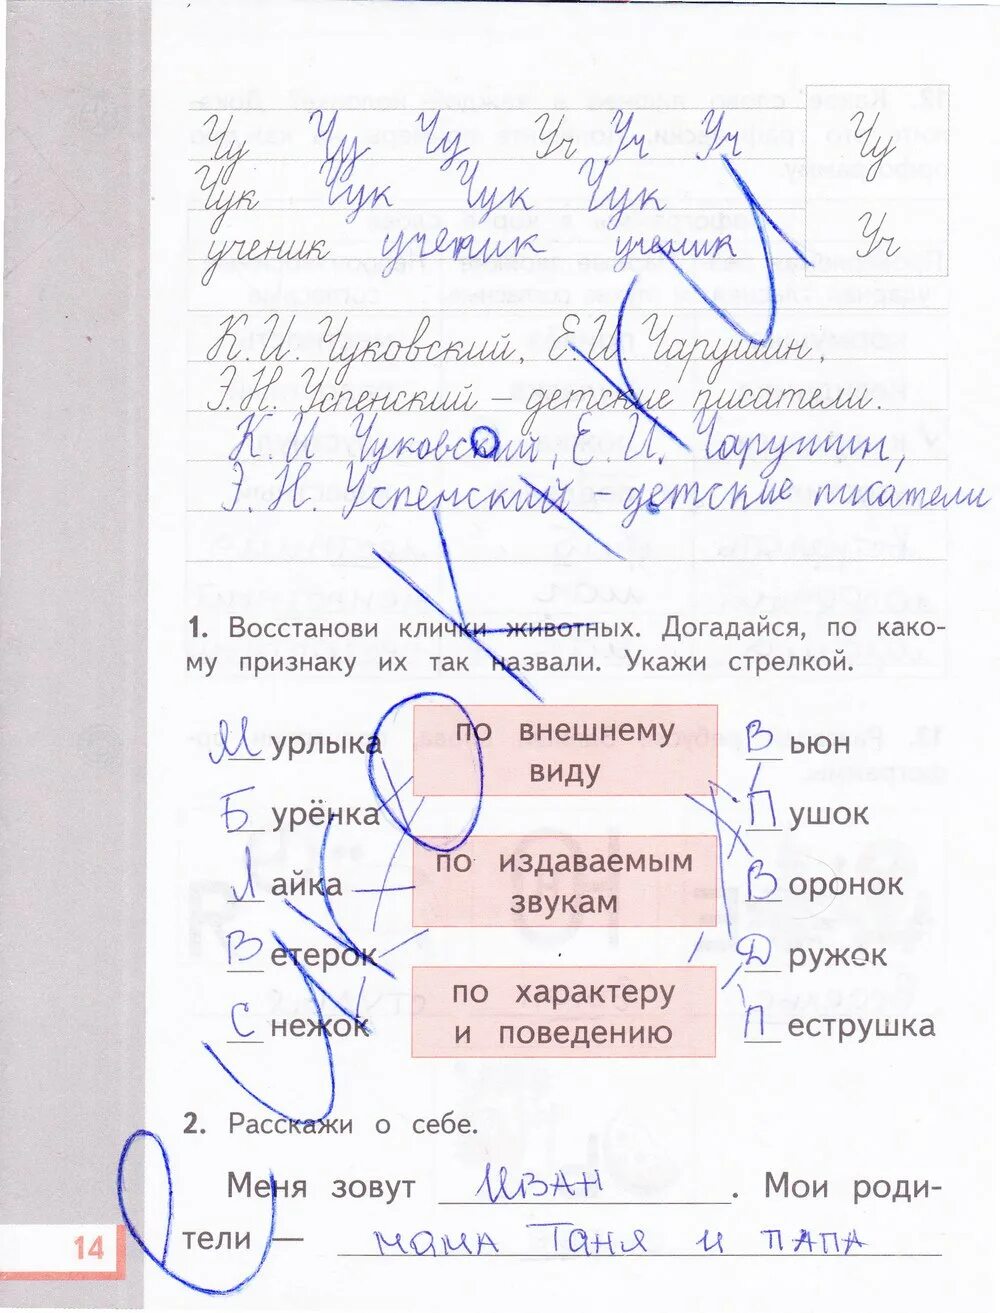 Чу Чу Чу Уч Уч Уч Чу
Чук Чук Чук Чук
ученик ученик ученик Уч
К.И. Чуковский, Е.И. Чарушин,
Э.Н. Успенский – детские писатели.
К. И Чуковский, Е И. Чарушин,
Э. Н. Успенский детские писатели
1. Восстанови клички животных. Догадайся, по како-
му признаку их так назвали. Укажи стрелкой.
Мурлыка по внешнему виду Вьюн
Бурёнка Пушок
Лайка по издаваемым звукам Воронок
Ветерок Дружок
Снежок по характеру и поведению Пеструшка
2. Расскажи о себе.
Меня зовут Иван. Мои роди-
тели — мама Таня и папа
14